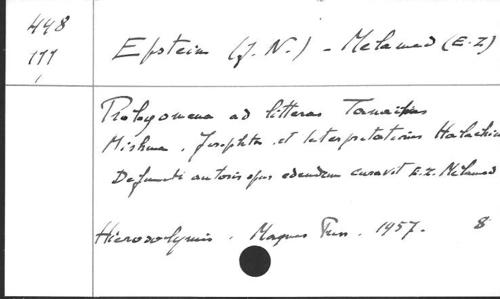 448
177
Epstein (J. N.) - Melamed (E. Z)
Prolegomena ad litteras Tannaiticas
Mishna, Tosephta et Interpretationes Halachicas
Defuncti autoris opus edendum curavit E. Z. Melamed
Hierosolymis. Magnes Press. 1957. 8